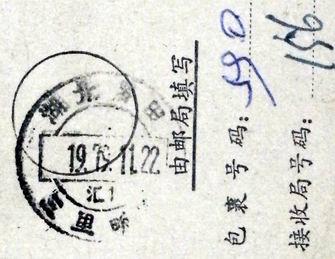 湖北
19.76.11.22
汇1
由邮局填写
包裹号码:590
接收局号码:156